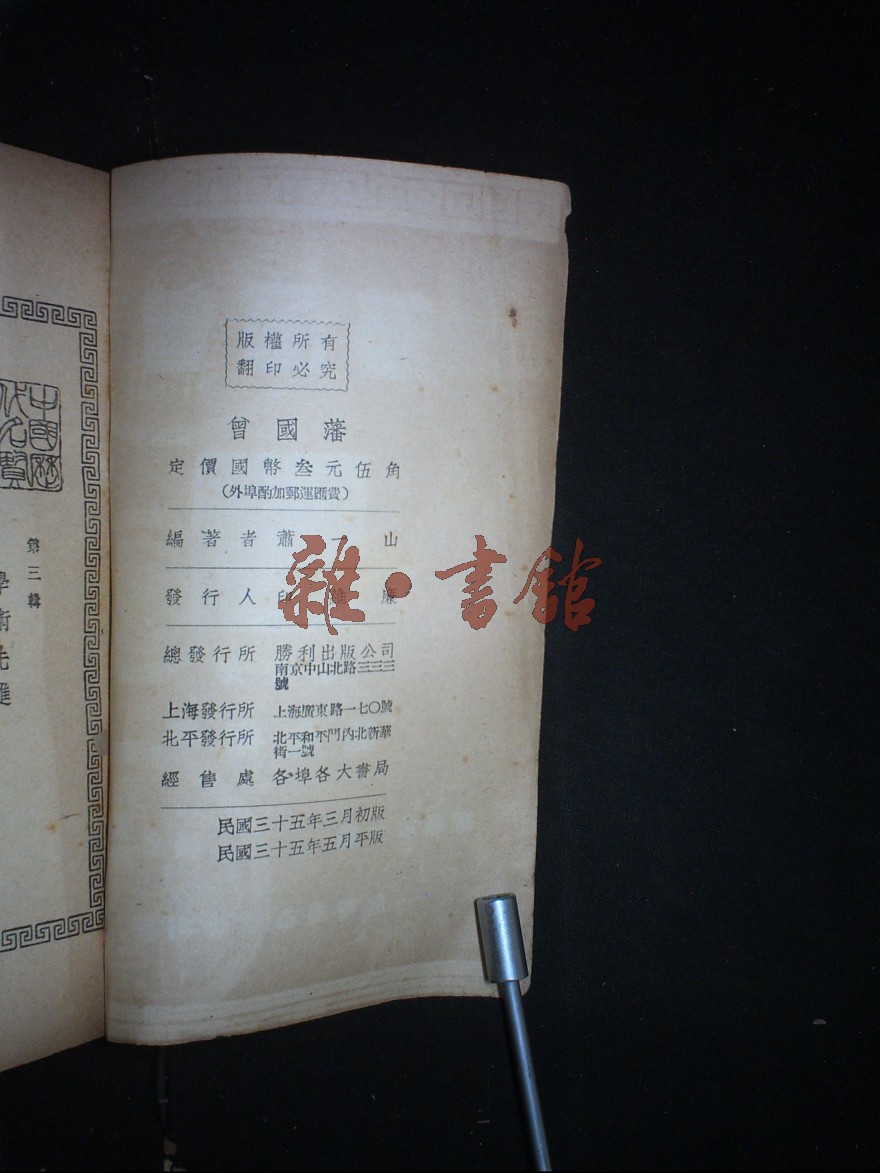 版權所有
翻印必究
曾國藩
定價國幣叁元伍角
(外埠酌加郵運匯費)
編著者 蕭一山
發行人 印維廉
總發行所 勝利出版公司
南京中山北路三三三
號
上海發行所 上海廣東路一七〇號
北平發行所 北平和平門內北新華
街一號
經售處 各埠各大書局
民國三十五年三月初版
民國三十五年五月平版
雜·書館
中國歷
代名賢
第三輯
學術先進